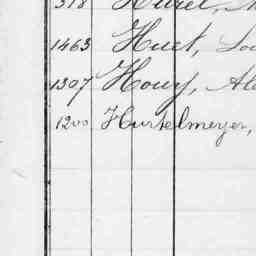 318
1463 Huet, Lou
1307 Houy, Ale
1200 Hurtelmeyer,